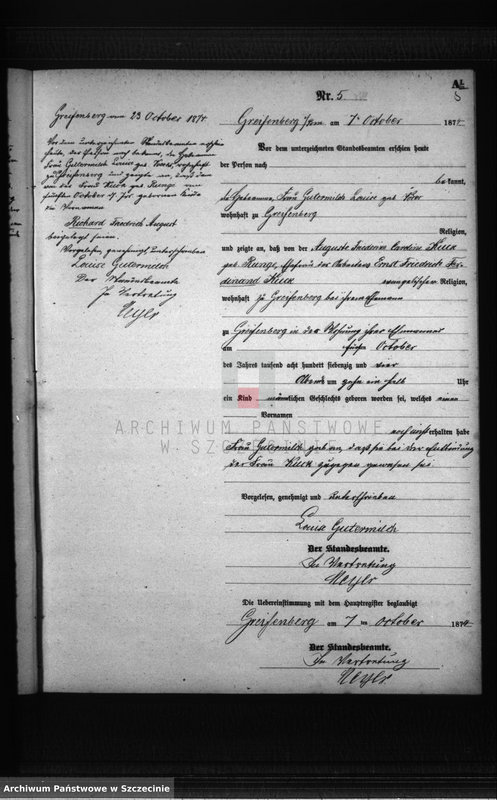 A.
5
Nr. 5
Greifenberg am 23 October 1874
Vor dem unterzeichneten Standesbeamten erschien
heute, der Person nach bekannt, die Hebamme
Frau Gutermilch Louise geb.
zu Greifenberg und zeigte an, daß dem
von der Frau Kuck geb. Runge am
fünften October d. Js. geborenen Kinde
die Vornamen
Richard Friedrich August
beigelegt seien
Vorgelesen, genehmigt, unterschrieben
Louise Gutermilch
Der Standesbeamte
In Vertretung
Greifenberg am 7 October 1874
Vor dem unterzeichneten Standesbeamten erschien heute
der Person nach
bekannt,
die Hebamme, Frau Gutermilch Louise geb.
wohnhaft zu Greifenberg
Religion,
und zeigte an, daß von der Auguste Kuck
geb. Runge, Ehefrau des Ernst Friedrich
Kuck evangelischer Religion,
wohnhaft zu Greifenberg bei ihrem Ehemann
zu Greifenberg in der Wohnung ihres Ehemannes
am October
des Jahres tausend acht hundert siebenzig und vier
Abends um zehn ein halb Uhr
ein Kind männlichen Geschlechts geboren worden sei, welches einen
Vornamen
noch nicht erhalten habe
Frau Gutermilch gab an, daß sie bei der Entbindung
der Frau Kuck zugegen gewesen sei
Vorgelesen, genehmigt und unterschrieben
Louise Gutermilch
Der Standesbeamte.
In Vertretung
Die Uebereinstimmung mit dem Hauptregister beglaubigt
Greifenberg am 7 ten October 1874
Der Standesbeamte.
In Vertretung
ARCHIWUM PAŃSTWOWE
W SZCZECINIE
Archiwum Państwowe w Szczecinie